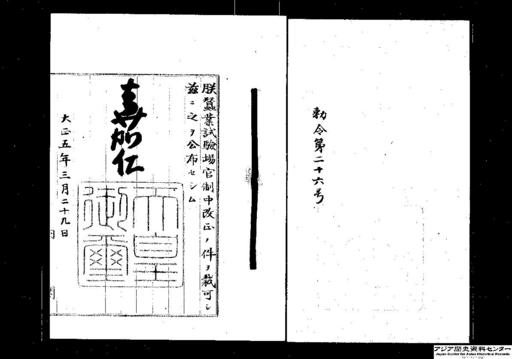 勅令第二十六号
朕蚕業試験場官制中改正ノ件ヲ裁可シ
茲ニ之ヲ公布セシム
嘉仁
天皇御璽
大正五年三月二十九日
アジア歴史資料センター
Japan Center for Asian Historical Records